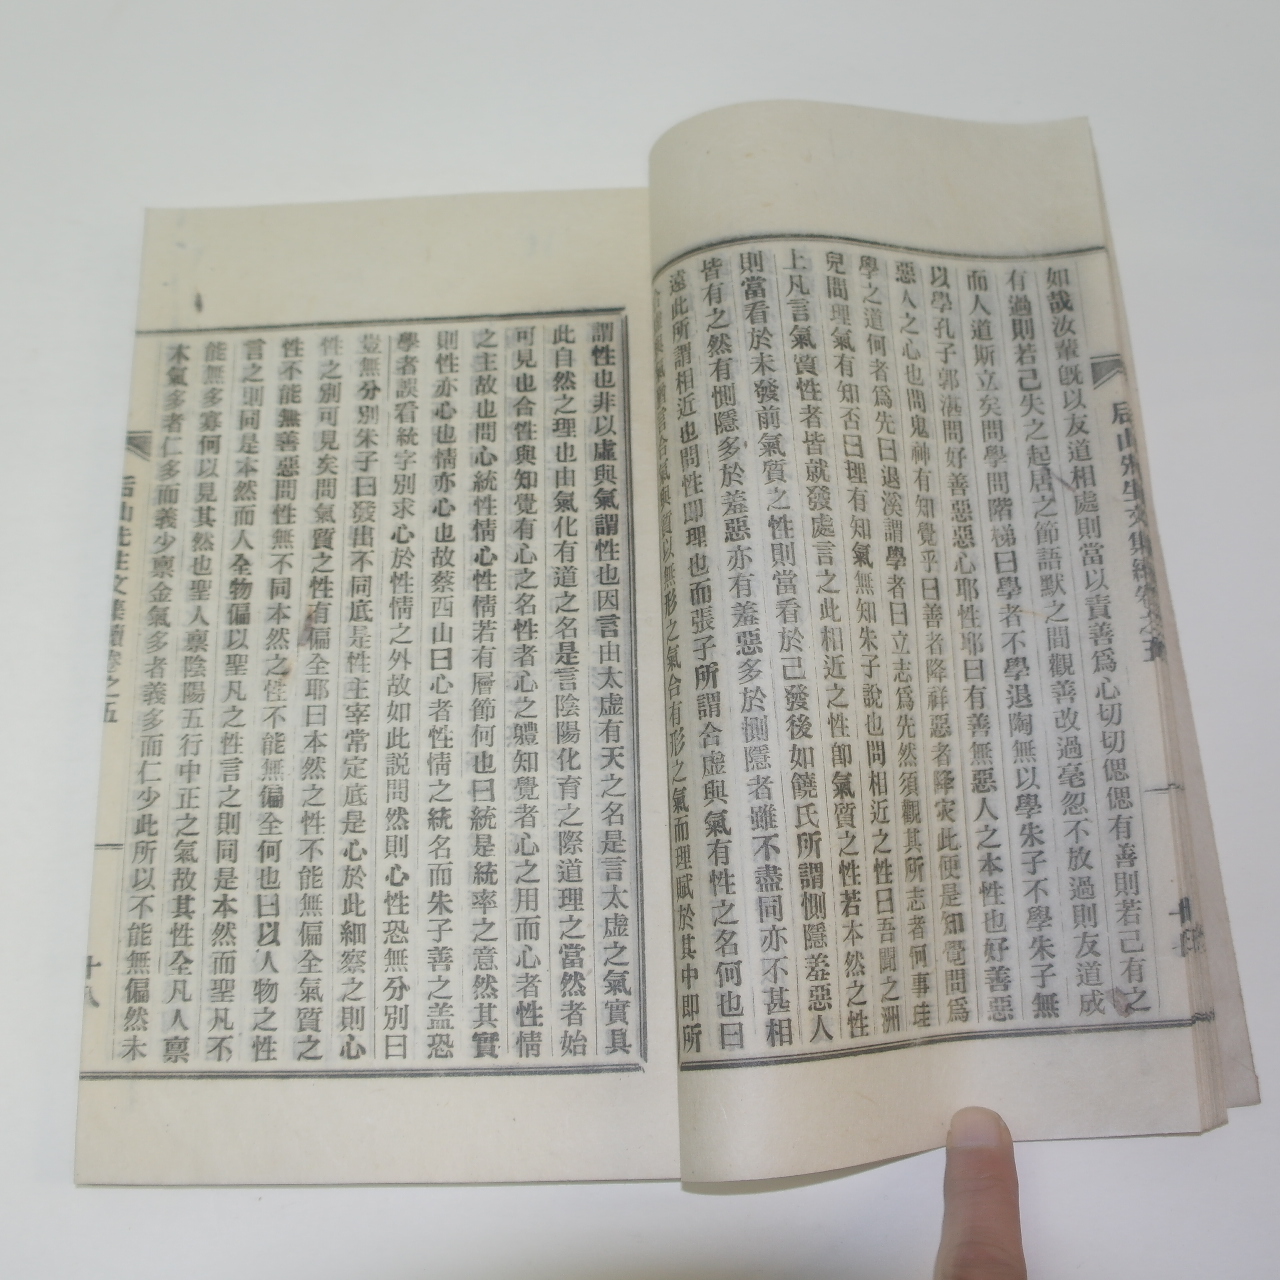 如哉汝輩旣以友道相處則當以責善爲心切切偲偲有善則若己有之
有過則若己失之起居之節語默之間觀善改過毫忽不放過則友道成
而人道斯立矣問學問階梯曰學者不學退陶無以學朱子不學朱子無
以學孔子郭湛問好善惡惡心耶性耶曰有善無惡人之本性也好善惡
惡人之心也問鬼神有知覺乎曰善者降祥惡者降灾此便是知覺問爲
學之道何者爲先曰退溪謂學者曰立志爲先然須觀其所志者何事珪
兒問理氣有知否曰理有知氣無知朱子說也問相近之性曰吾聞之洲
上凡言氣質性者皆就發處言之此相近之性卽氣質之性若本然之性
則當看於未發前氣質之性則當看於已發後如饒氏所謂惻隱羞惡人
皆有之然有惻隱多於羞惡亦有羞惡多於惻隱者雖不盡同亦不甚相
遠此所謂相近也問性卽理也而張子所謂合虛與氣有性之名何也曰
質以無形之氣合有形之氣而理賦於其中卽所
謂性也非以虛與氣謂性也因言由太虛有天之名是言太虛之氣實具
此自然之理也由氣化有道之名是言陰陽化育之際道理之當然者始
可見也合性與知覺有心之名性者心之軆知覺者心之用而心者性情
之主故也問心統性情心性情若有層節何也曰統是統率之意然其實
則性亦心也情亦心也故蔡西山曰心者性情之統名而朱子善之盖恐
學者誤看統字別求心於性情之外故如此説問然則心性恐無分別曰
豈無分別朱子曰發出不同底是性主宰常定底是心於此細察之則心
性之別可見矣問氣質之性有偏全耶曰本然之性不能無偏全氣質之
性不能無善惡問性無不同本然之性不能無偏全何也曰以人物之性
言之則同是本然而人全物偏以聖凡之性言之則同是本然而聖凡不
能無多寡何以見其然也聖人禀陰陽五行中正之氣故其性全凡人禀
木氣多者仁多而義少禀金氣多者義多而仁少此所以不能無偏然未
后山先生文集續卷之五
十八